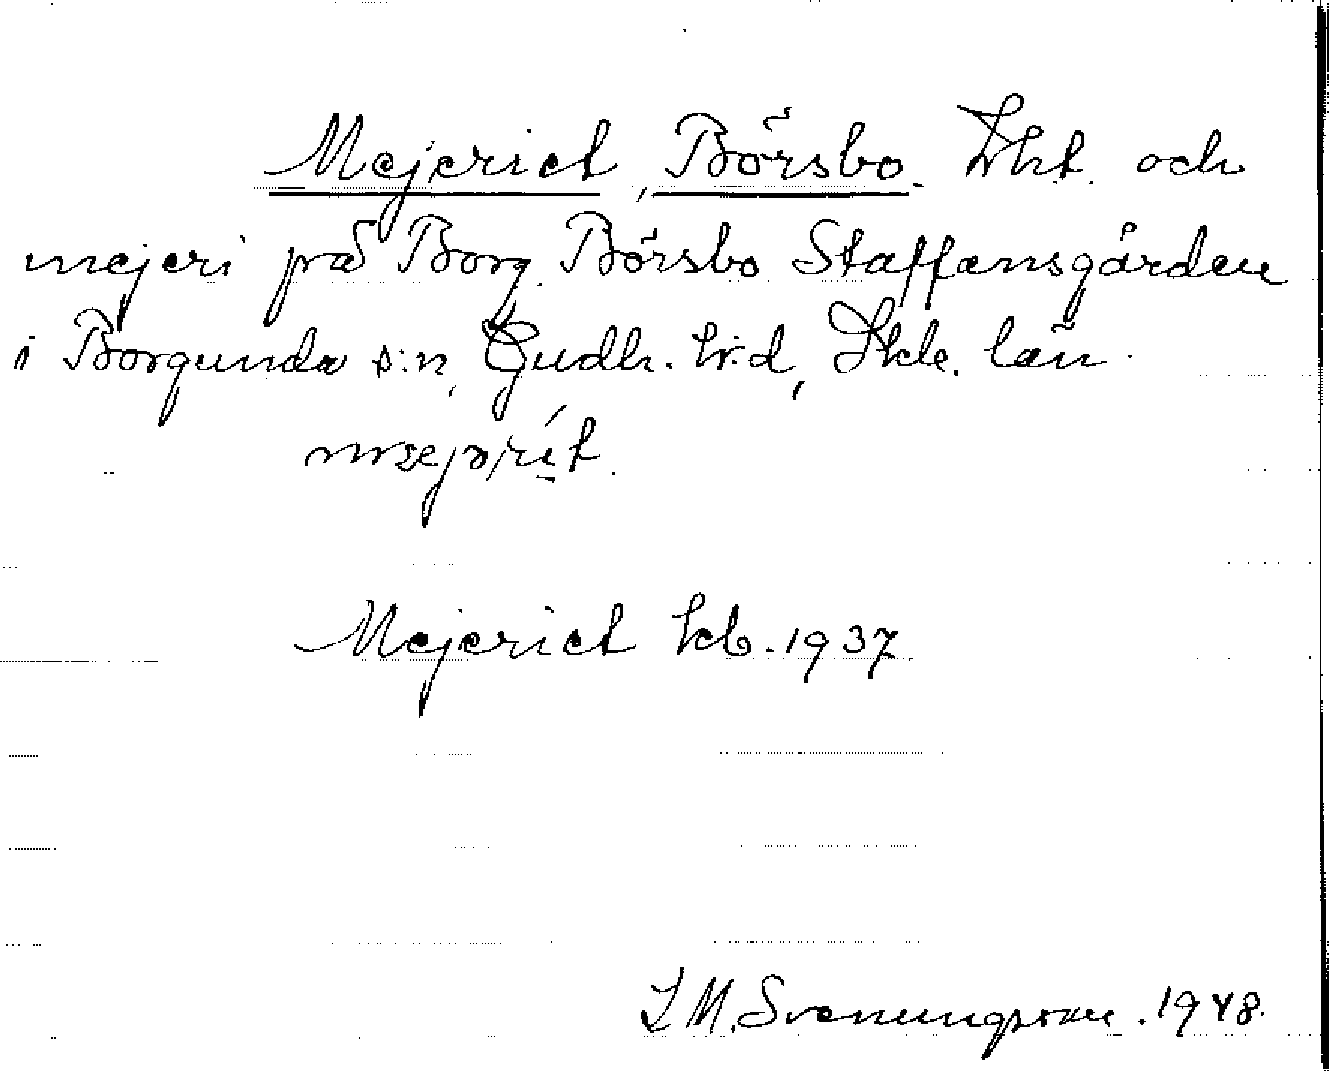 Mejeriet, Börsbo. Lht. och
mejeri på Borg. Börsbo Staffansgården
i Borgunda s:n, Gudh. hd, Skbg. län.
Mejeriet kb. 1937
S M. Svenungsson. 1948.